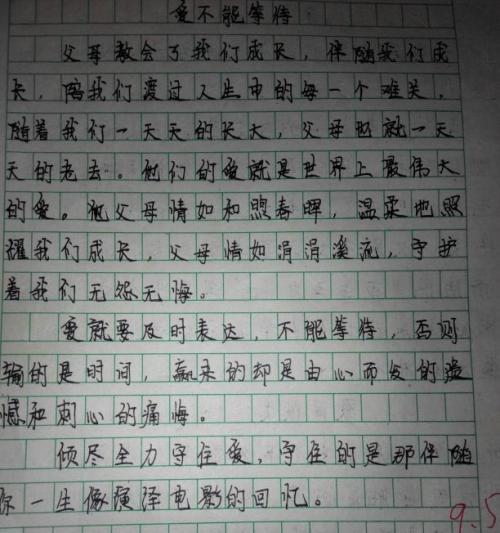 爱不能等待
父母教会了我们成长，伴随我们成
长，陪我们渡过人生中的每一个难关，
随着我们一天天的长大，父母也就一天
天的老去。他们的爱就是世界上最伟大
的爱。他父母情如和煦春晖，温柔地照
耀我们成长，父母情如涓涓溪流，守护
着我们无怨无悔。
爱就要及时表达，不能等待，否则
输的是时间，赢来的却是由心而发的遗
憾和刺心的痛悔。
倾尽全力守住爱，守住的是那伴随
你一生像演绎电影的回忆。
9.5